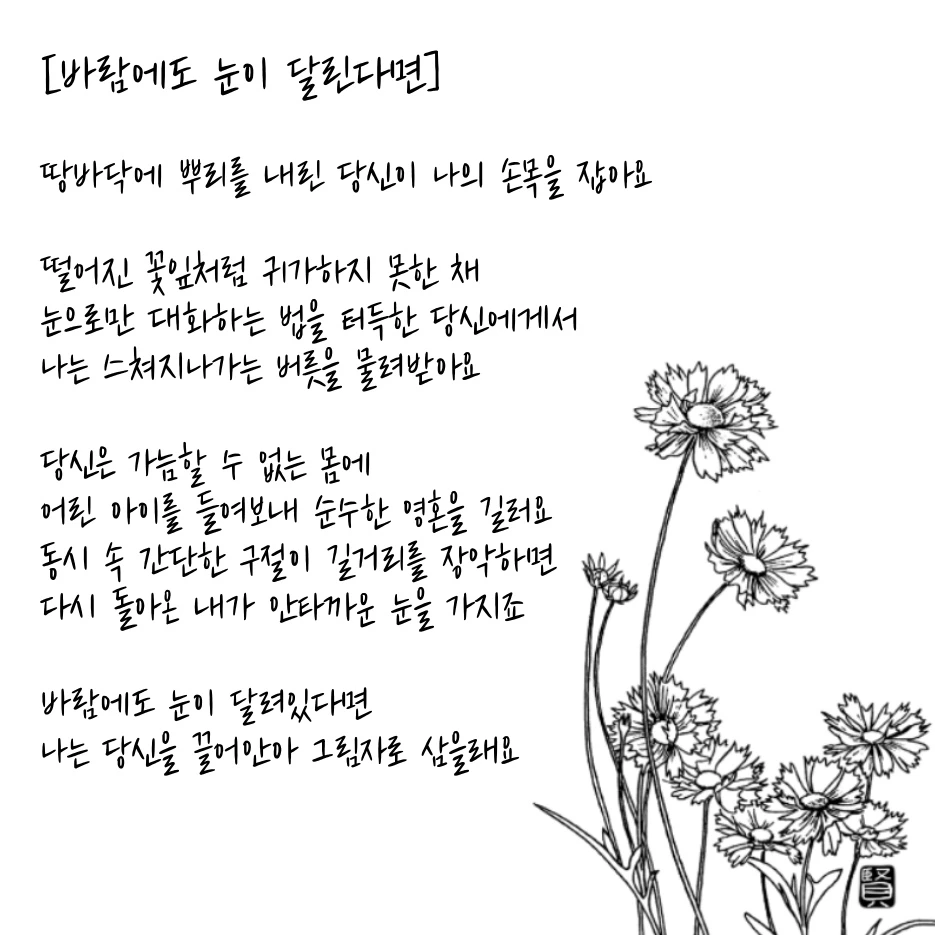 [바람에도 눈이 달린다면]
땅바닥에 뿌리를 내린 당신이 나의 손목을 잡아요
떨어진 꽃잎처럼 귀가하지 못한 채
눈으로만 대화하는 법을 터득한 당신에게서
나는 스쳐지나가는 버릇을 물려받아요
당신은 가늠할 수 없는 몸에
어린 아이를 들여보내 순수한 영혼을 길러요
동시 속 간단한 구절이 길거리를 장악하면
다시 돌아온 내가 안타까운 눈을 가지죠
바람에도 눈이 달려있다면
나는 당신을 끌어안아 그림자로 삼을래요
賢